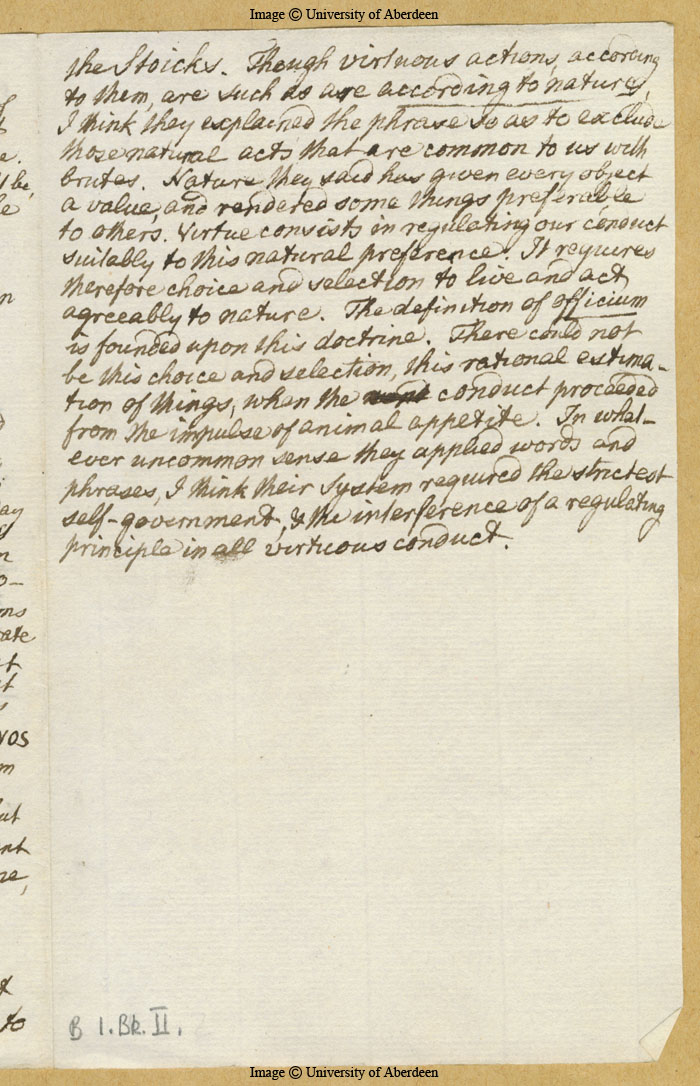 Image © University of Aberdeen
the Stoicks. Though virtuous actions, according
to them, are such as are according to nature,
I think they explained the phrase so as to exclude
those natural acts that are common to us with
brutes. Nature they said has given every object
a value, and rendered some things preferable
to others. Virtue consists in regulating our conduct
suitably to this natural preference. It requires
therefore choice and selection to live and act
agreeably to nature. The definition of officium
is founded upon this doctrine. There could not
be this choice and selection, this rational estima-
tion of things, when the conduct proceeded
from the impulse of animal appetite. In what-
ever uncommon sense they applied words and
phrases, I think their System required the strictest
self-government, & the interference of a regulating
principle in all virtuous conduct.
B 1. Bk. II.
Image © University of Aberdeen